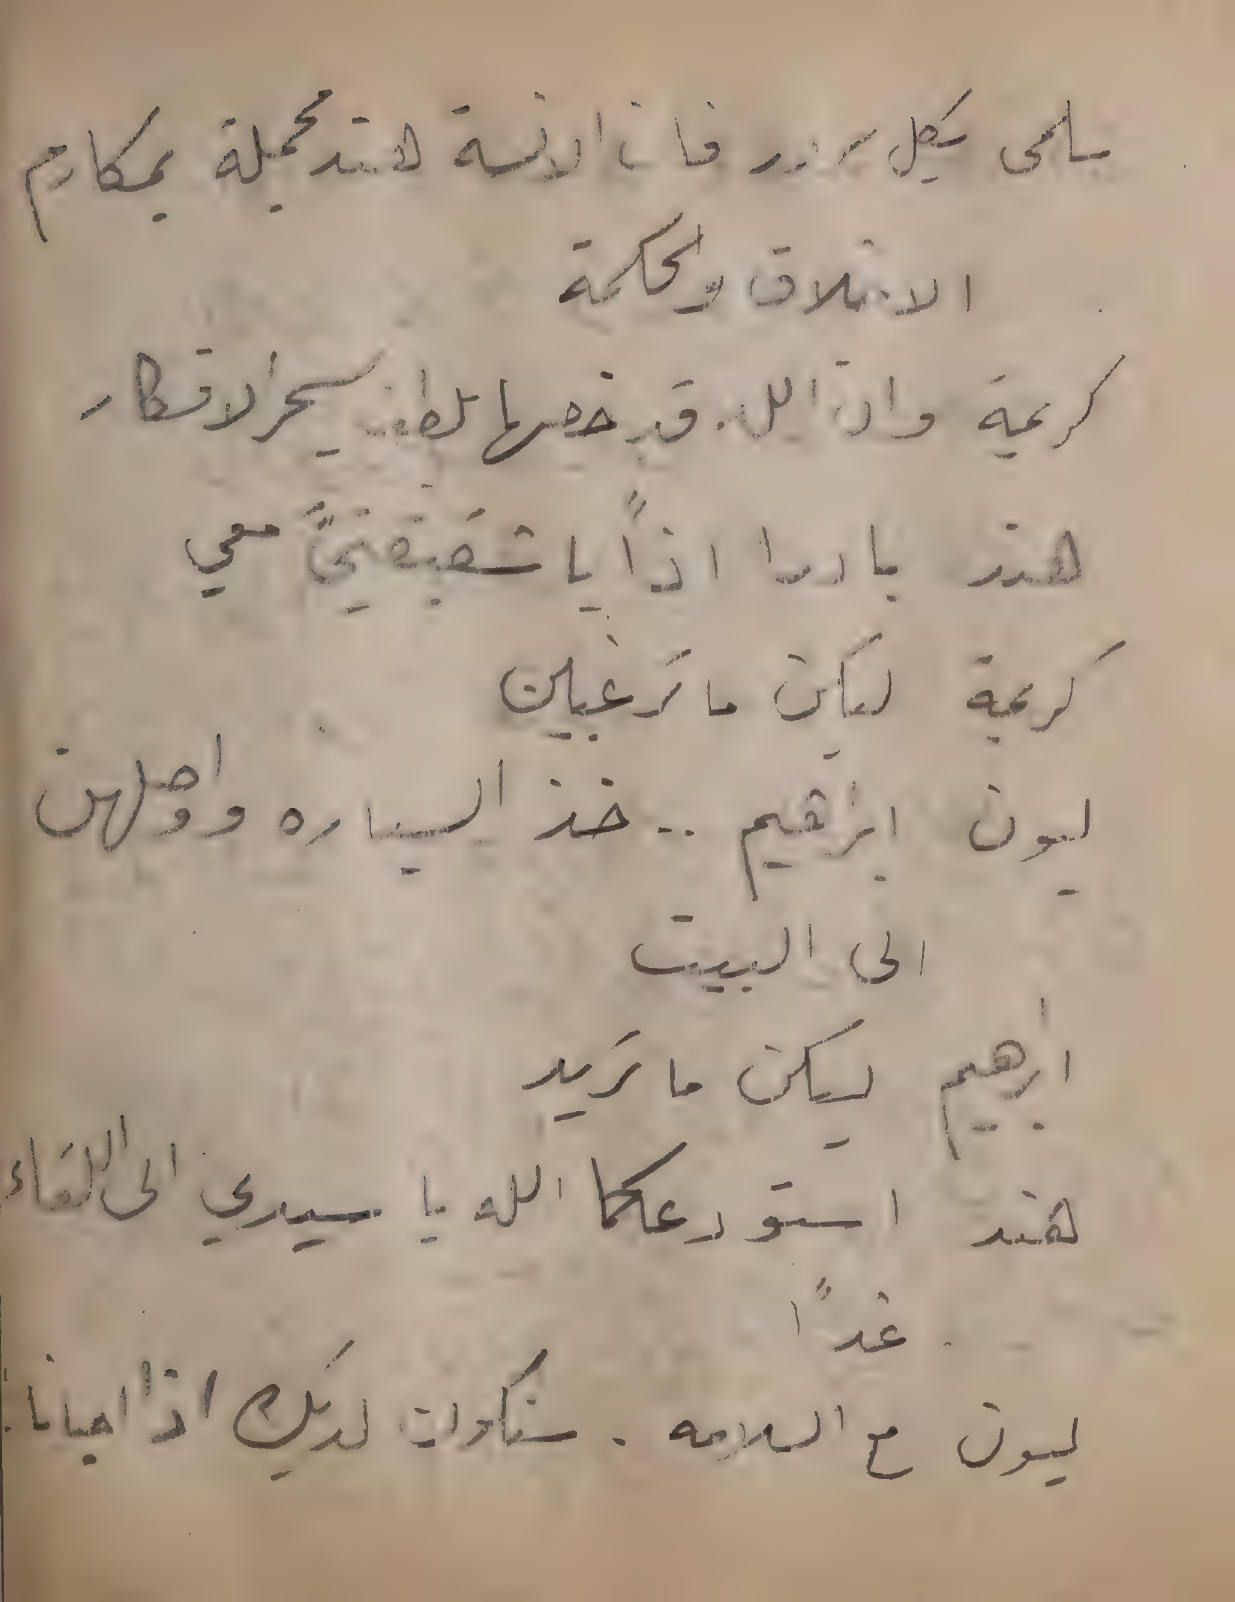 سلمى بكل سرور فان الانسة هند مجملة بمكارم
الاخلاق والحكمة
كريمة وان الله قد خصها بلطف يسحر الافكار
هند بادرا اذاً يا شقيقتيَّ معي
كريمة ليكن ما ترغبين
ليون ابرهيم .. خذ السياره واوصلهن
الى البيت
ابرهيم ليكن ما تريد
هند استودعكما الله يا سيدي الى اللقاء
غداً
ليون مع السلامه . سنكون لديك اذا